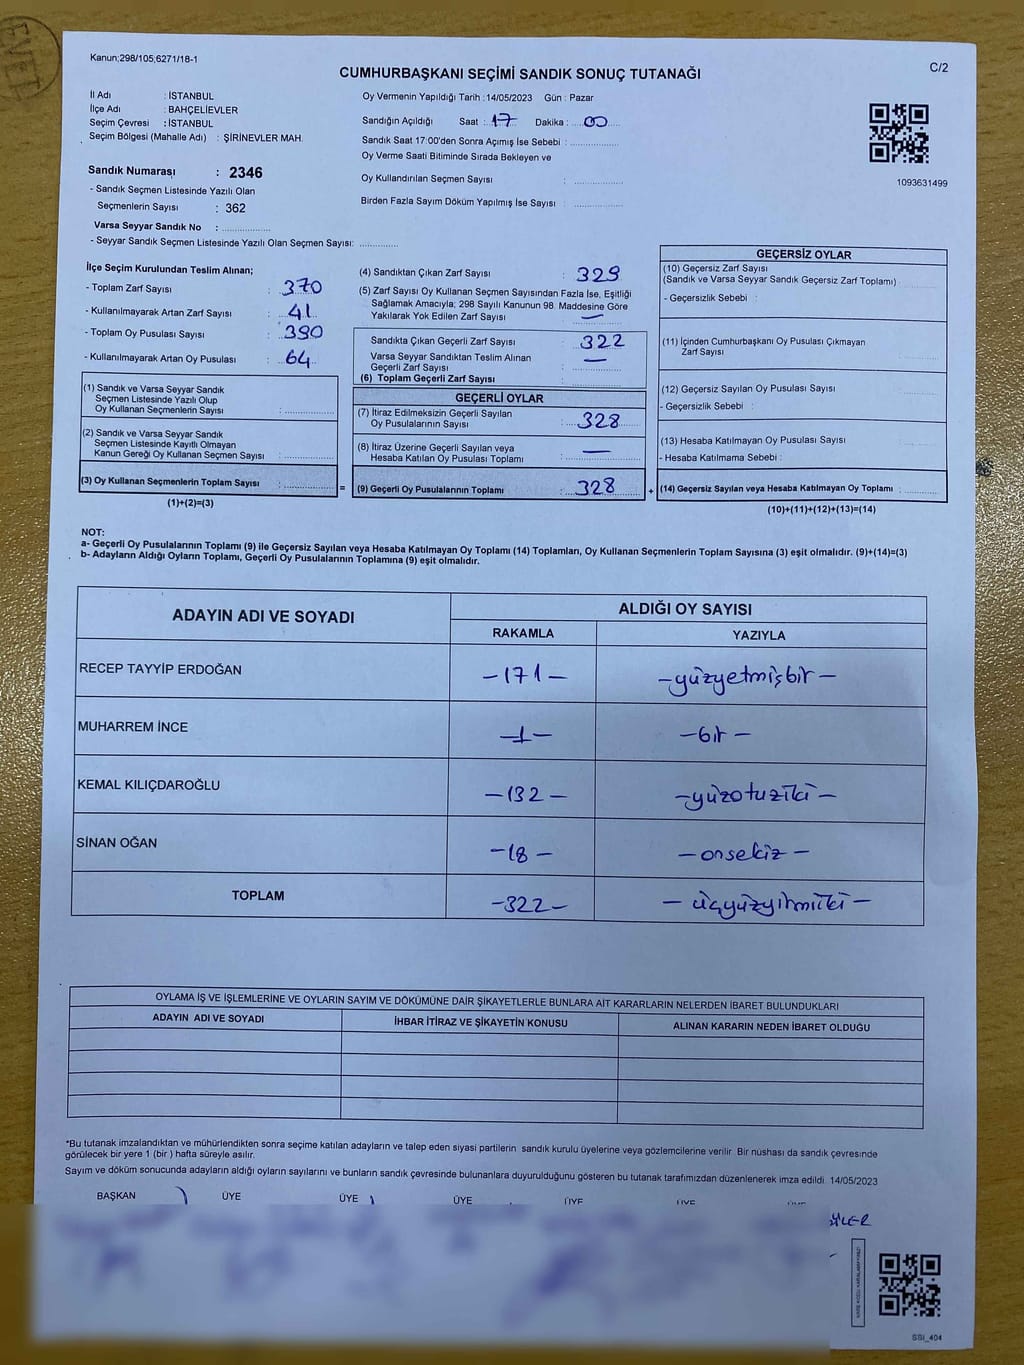 EVET
Kanun;298/105,6271/18-1
C/2
CUMHURBAŞKANI SEÇİMİ SANDIK SONUÇ TUTANAĞI
İl Adı : İSTANBUL
İlçe Adı : BAHÇELİEVLER
Seçim Çevresi : İSTANBUL
Seçim Bölgesi (Mahalle Adı) : ŞİRİNEVLER MAH.
Oy Vermenin Yapıldığı Tarih :14/05/2023 Gün : Pazar
Sandığın Açıldığı Saat : 17 Dakika : 00
Sandık Saat 17:00'den Sonra Açımış İse Sebebi :
Oy Verme Saati Bitiminde Sırada Bekleyen ve
Oy Kullandırılan Seçmen Sayısı :
Birden Fazla Sayım Döküm Yapılmış İse Sayısı :
1093631499
Sandık Numarası : 2346
- Sandık Seçmen Listesinde Yazılı Olan
Seçmenlerin Sayısı : 362
Varsa Seyyar Sandık No :
- Seyyar Sandık Seçmen Listesinde Yazılı Olan Seçmen Sayısı:
İlçe Seçim Kurulundan Teslim Alınan;
- Toplam Zarf Sayısı : 370
- Kullanılmayarak Artan Zarf Sayısı : 41
- Toplam Oy Pusulası Sayısı : 390
- Kullanılmayarak Artan Oy Pusulası : 64
(1) Sandık ve Varsa Seyyar Sandık
Seçmen Listesinde Yazılı Olup
Oy Kullanan Seçmenlerin Sayısı :
(2) Sandık ve Varsa Seyyar Sandık
Seçmen Listesinde Kayıtlı Olmayan
Kanun Gereği Oy Kullanan Seçmen Sayısı :
(3) Oy Kullanan Seçmenlerin Toplam Sayısı :
(1)+(2)=(3)
(4) Sandıktan Çıkan Zarf Sayısı : 329
(5) Zarf Sayısı Oy Kullanan Seçmen Sayısından Fazla İse, Eşitliği
Sağlamak Amacıyla; 298 Sayılı Kanunun 98. Maddesine Göre
Yakılarak Yok Edilen Zarf Sayısı : —
Sandıkta Çıkan Geçerli Zarf Sayısı : 322
Varsa Seyyar Sandıktan Teslim Alınan —
Geçerli Zarf Sayısı :
(6) Toplam Geçerli Zarf Sayısı :
GEÇERLİ OYLAR
(7) İtiraz Edilmeksizin Geçerli Sayılan
Oy Pusulalarının Sayısı : 328
(8) İtiraz Üzerine Geçerli Sayılan veya
Hesaba Katılan Oy Pusulası Toplamı : —
= (9) Geçerli Oy Pusulalarının Toplamı : 328 +
GEÇERSİZ OYLAR
(10) Geçersiz Zarf Sayısı
(Sandık ve Varsa Seyyar Sandık Geçersiz Zarf Toplamı) :
- Geçersizlik Sebebi :
(11) İçinden Cumhurbaşkanı Oy Pusulası Çıkmayan
Zarf Sayısı :
(12) Geçersiz Sayılan Oy Pusulası Sayısı :
- Geçersizlik Sebebi :
(13) Hesaba Katılmayan Oy Pusulası Sayısı :
- Hesaba Katılmama Sebebi :
(14) Geçersiz Sayılan veya Hesaba Katılmayan Oy Toplamı :
(10)+(11)+(12)+(13)=(14)
NOT:
a- Geçerli Oy Pusulalarının Toplamı (9) ile Geçersiz Sayılan veya Hesaba Katılmayan Oy Toplamı (14) Toplamları, Oy Kullanan Seçmenlerin Toplam Sayısına (3) eşit olmalıdır. (9)+(14)=(3)
b- Adayların Aldığı Oyların Toplamı, Geçerli Oy Pusulalarının Toplamına (9) eşit olmalıdır.
ADAYIN ADI VE SOYADI
ALDIĞI OY SAYISI
RAKAMLA YAZIYLA
RECEP TAYYİP ERDOĞAN -171- -yüzyetmişbir-
MUHARREM İNCE -1- -bir-
KEMAL KILIÇDAROĞLU -132- -yüzotuziki-
SİNAN OĞAN -18- -onsekiz-
TOPLAM -322- -üçyüzyirmiiki-
OYLAMA İŞ VE İŞLEMLERİNE VE OYLARIN SAYIM VE DÖKÜMÜNE DAİR ŞİKAYETLERLE BUNLARA AİT KARARLARIN NELERDEN İBARET BULUNDUKLARI
ADAYIN ADI VE SOYADI İHBAR İTİRAZ VE ŞİKAYETİN KONUSU ALINAN KARARIN NEDEN İBARET OLDUĞU
*Bu tutanak imzalandıktan ve mühürlendikten sonra seçime katılan adayların ve talep eden siyasi partilerin sandık kurulu üyelerine veya gözlemcilerine verilir Bir nüshası da sandık çevresinde
görülecek bir yere 1 (bir ) hafta süreyle asılır.
Sayım ve döküm sonucunda adayların aldığı oyların sayılarını ve bunların sandık çevresinde bulunanlara duyurulduğunu gösteren bu tutanak tarafımızdan düzenlenerek imza edildi. 14/05/2023
BAŞKAN ÜYE ÜYE ÜYE ÜYE ÜYE ÜYE
SSI_404